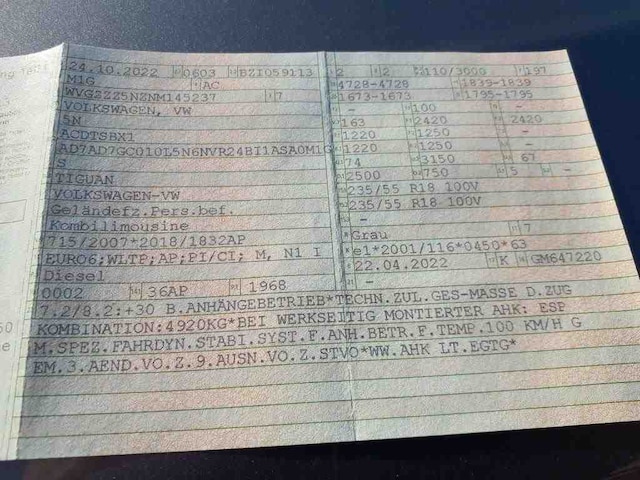 24.10.2022 0603 BZI059113 2 2 110/3000 197
M1G AC 4728-4728 1839-1839
WVGZZZ5NZNM145237 7 1673-1673 1795-1795
VOLKSWAGEN, VW - 100 -
5N 163 2420 2420
ACDTSBX1 1220 1250 -
AD7AD7GC010L5N6NVR24BI1ASA0M1G 1220 1250 -
S 74 3150 67
TIGUAN 2500 750 5 -
VOLKSWAGEN-VW 235/55 R18 100V
Geländefz.Pers.bef. 235/55 R18 100V
Kombilimousine -
715/2007*2018/1832AP Grau 7
EURO6;WLTP;AP;PI/CI; M, N1 I e1*2001/116*0450*63
Diesel 22.04.2022 K GM647220
0002 36AP 1968 -
7.2/8.2:+30 B.ANHÄNGEBETRIEB*TECHN.ZUL.GES-MASSE D.ZUG
KOMBINATION:4920KG*BEI WERKSEITIG MONTIERTER AHK: ESP
M.SPEZ.FAHRDYN.STABI.SYST.F.ANH.BETR.F.TEMP.100 KM/H G
EM.3.AEND.VO.Z.9.AUSN.VO.Z.STVO*WW.AHK LT.EGTG*